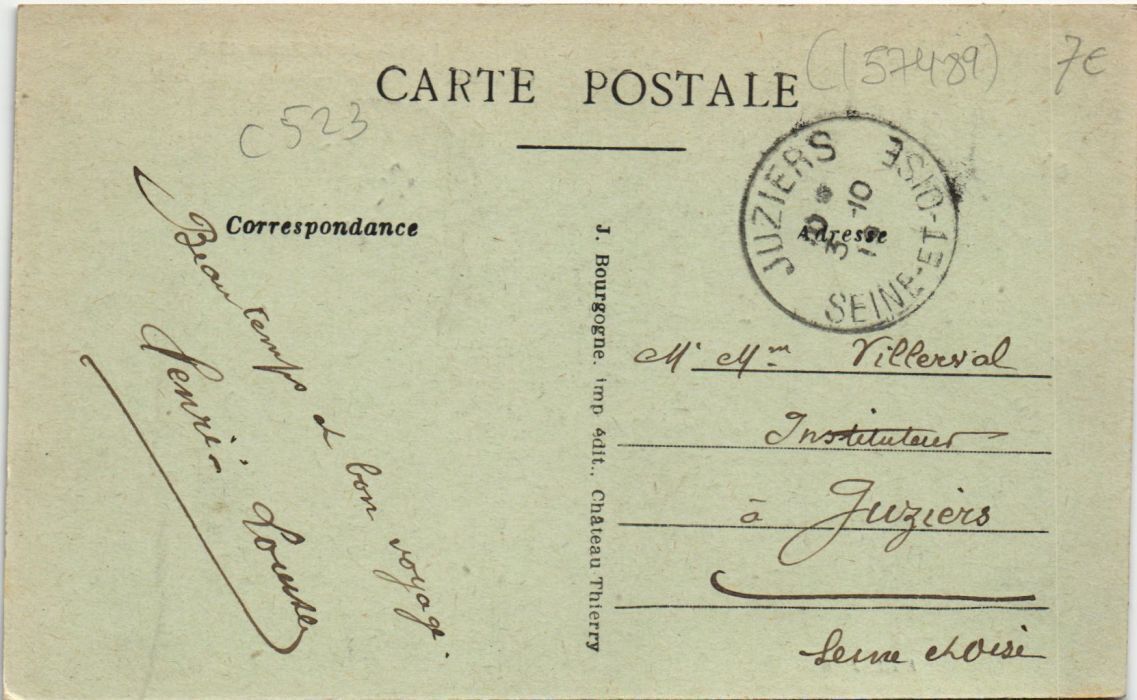 (157489) 7€
CARTE POSTALE
C523
JUZIERS
SEINE-ET-OISE
10
Correspondance
Adresse
Beau temps et bon voyage.
Henri
J. Bourgogne. imp édit., Château Thierry
Mr Mm Villerval
Instituteur
à Juziers
Seine et Oise